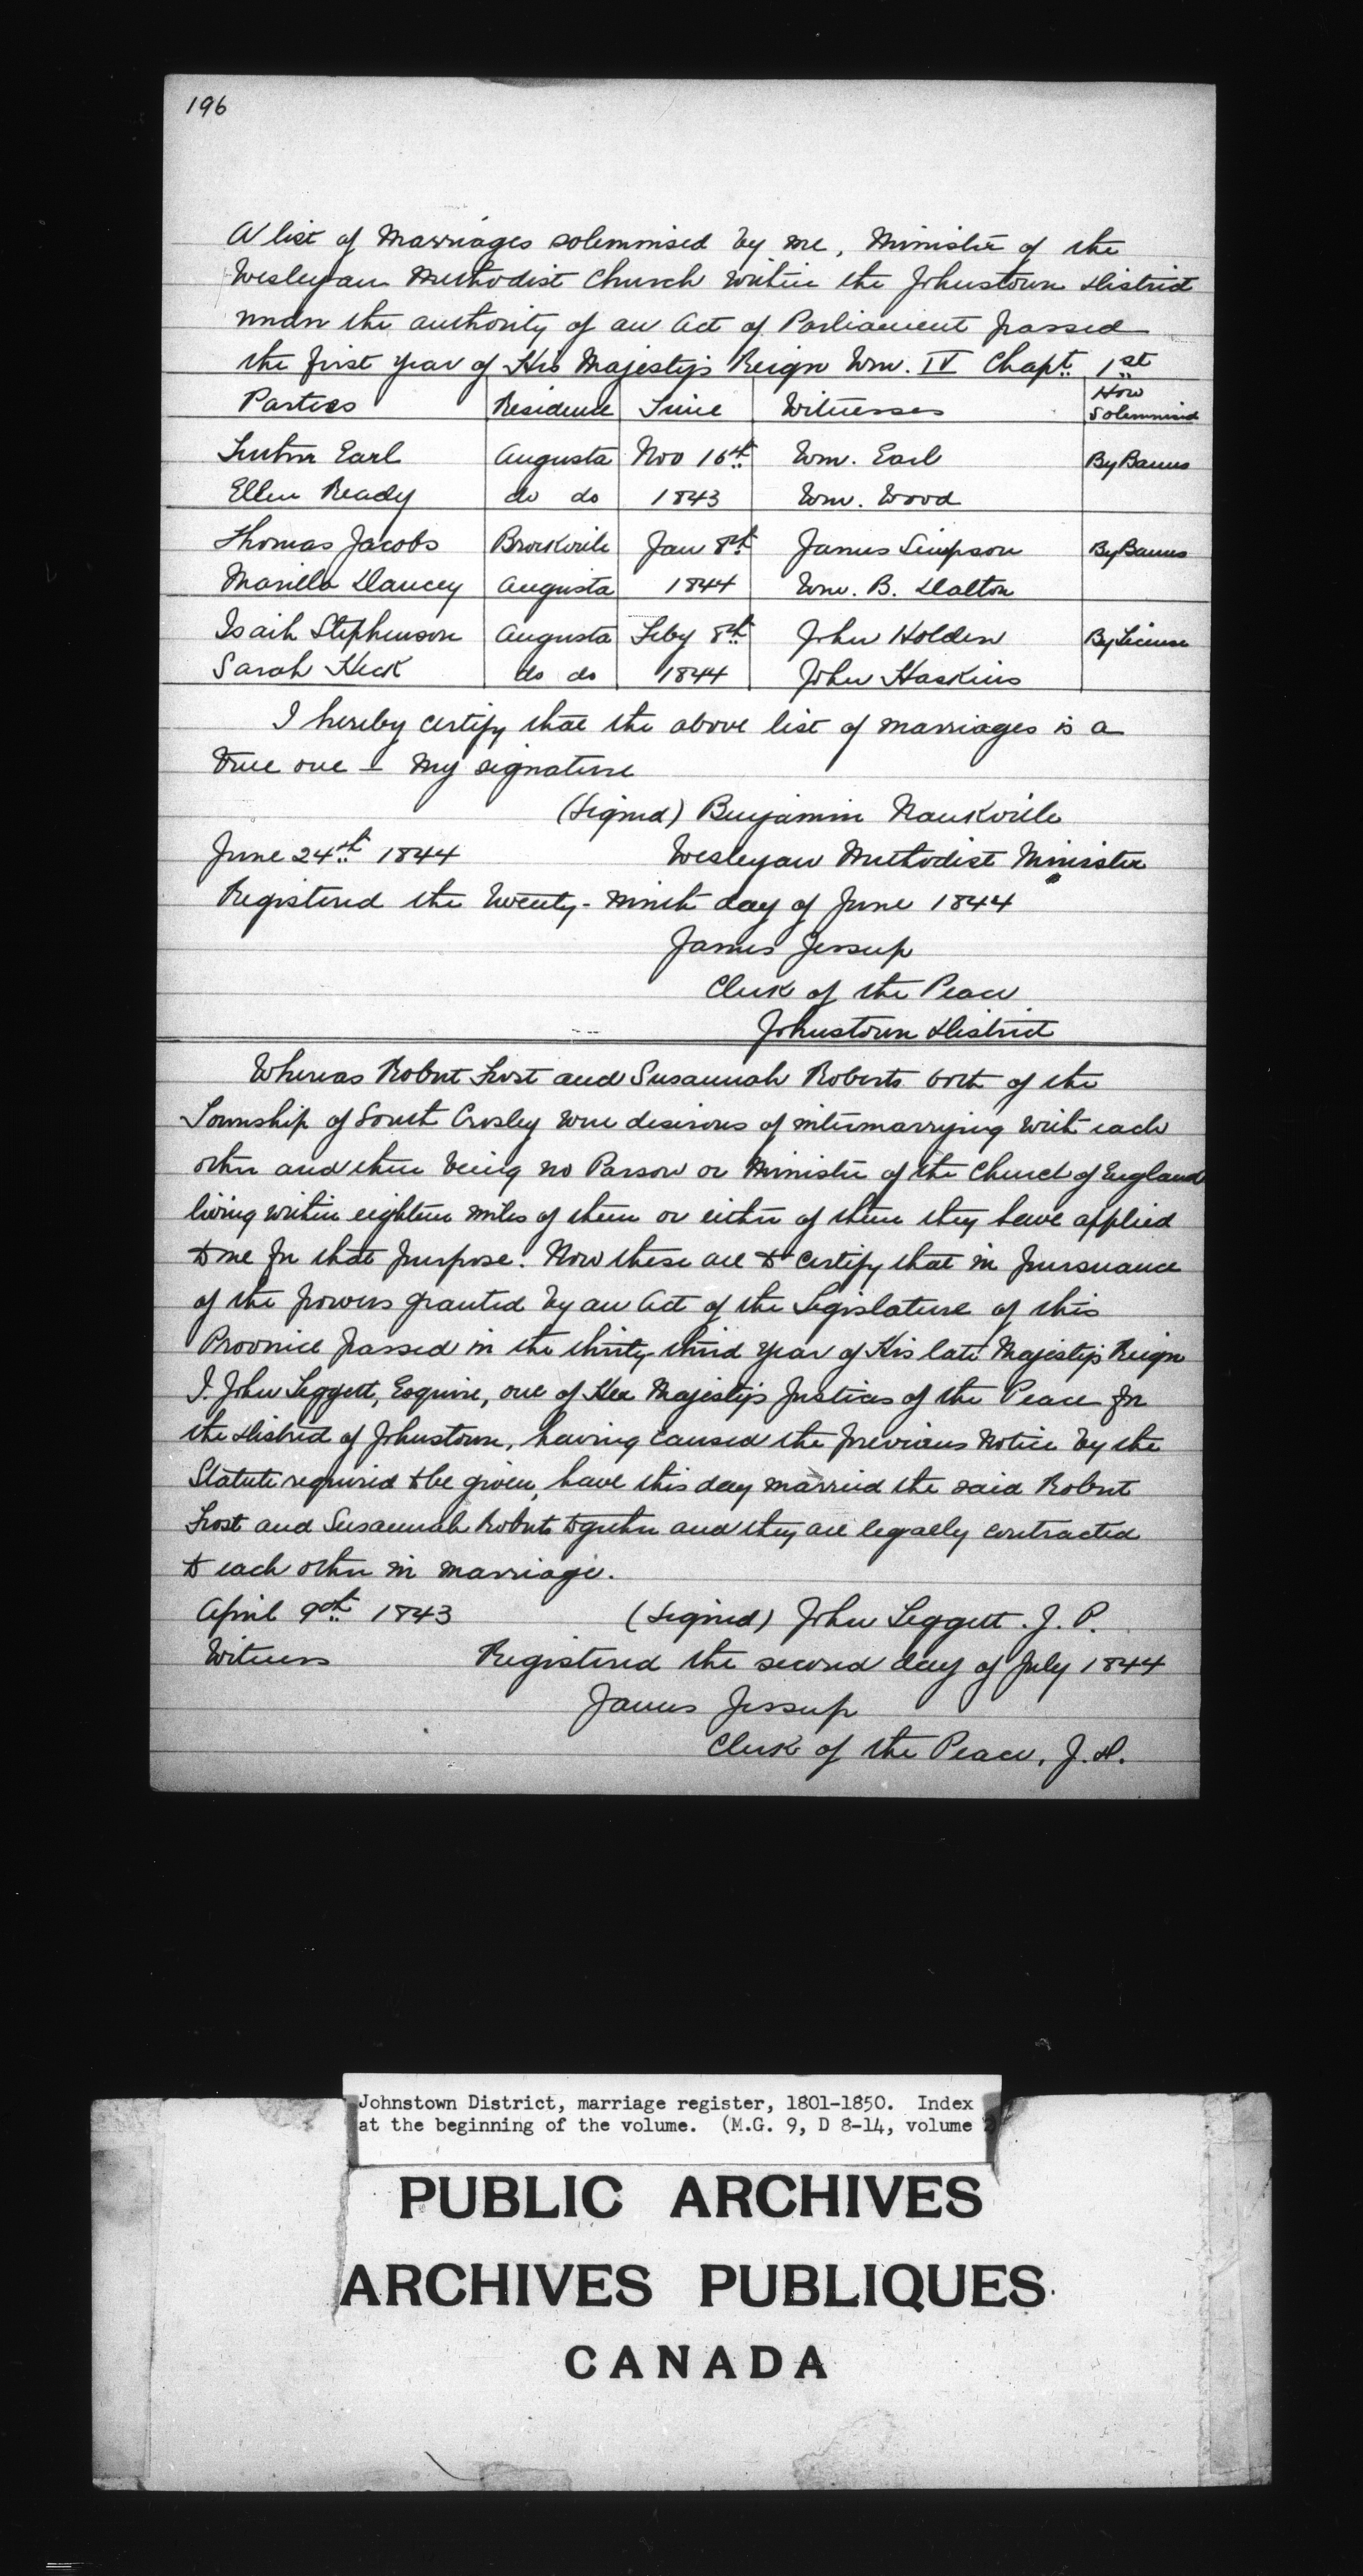 196
A list of Marriages solemnised by me, Minister of the
Wesleyan Methodist Church within the Johnstown District
under the authority of an Act of Parliament passed
the first year of His Majesty's Reign Wm. IV Chapt. 1st
Parties Residence Time Witnesses How Solemnised
Luther Earl Augusta Nov 16th Wm. Earl By Banns
Ellen Ready do do 1843 Wm. Wood
Thomas Jacobs Brockville Jan 8th James Simpson By Banns
Marilla Dancey Augusta 1844 Wm. B. Dalton
Isaih Stephenson Augusta Feby 8th John Holden By License
Sarah Heck do do 1844 John Haskins
I hereby certify that the above list of marriages is a
true one – My signature
(Signed) Benjamin Nankville
June 24th 1844 Wesleyan Methodist Minister
Registered the twenty-ninth day of June 1844
James Jessup
Clerk of the Peace
Johnstown District
Whereas Robert Frost and Susannah Roberts both of the
Township of South Crosley were desirous of intermarrying with each
other and there being no Parson or Minister of the Church of England
living within eighteen miles of them or either of them they have applied
to me for that purpose. Now these are to certify that in pursuance
of the powers granted by an Act of the Legislature of this
Province passed in the thirty-third year of His late Majesty's Reign
I. John Leggett, Esquire, one of Her Majesty's Justices of the Peace for
the District of Johnstown, having caused the previous notice by the
Statute required to be given, have this day married the said Robert
Frost and Susannah Roberts together and they are legally contracted
to each other in marriage.
April 9th 1843 (Signed) John Leggett. J. P.
Witness Registered the second day of July 1844
James Jessup
Clerk of the Peace, J. D.
Johnstown District, marriage register, 1801-1850. Index
at the beginning of the volume. (M.G. 9, D 8-14, volume
PUBLIC ARCHIVES
ARCHIVES PUBLIQUES
CANADA